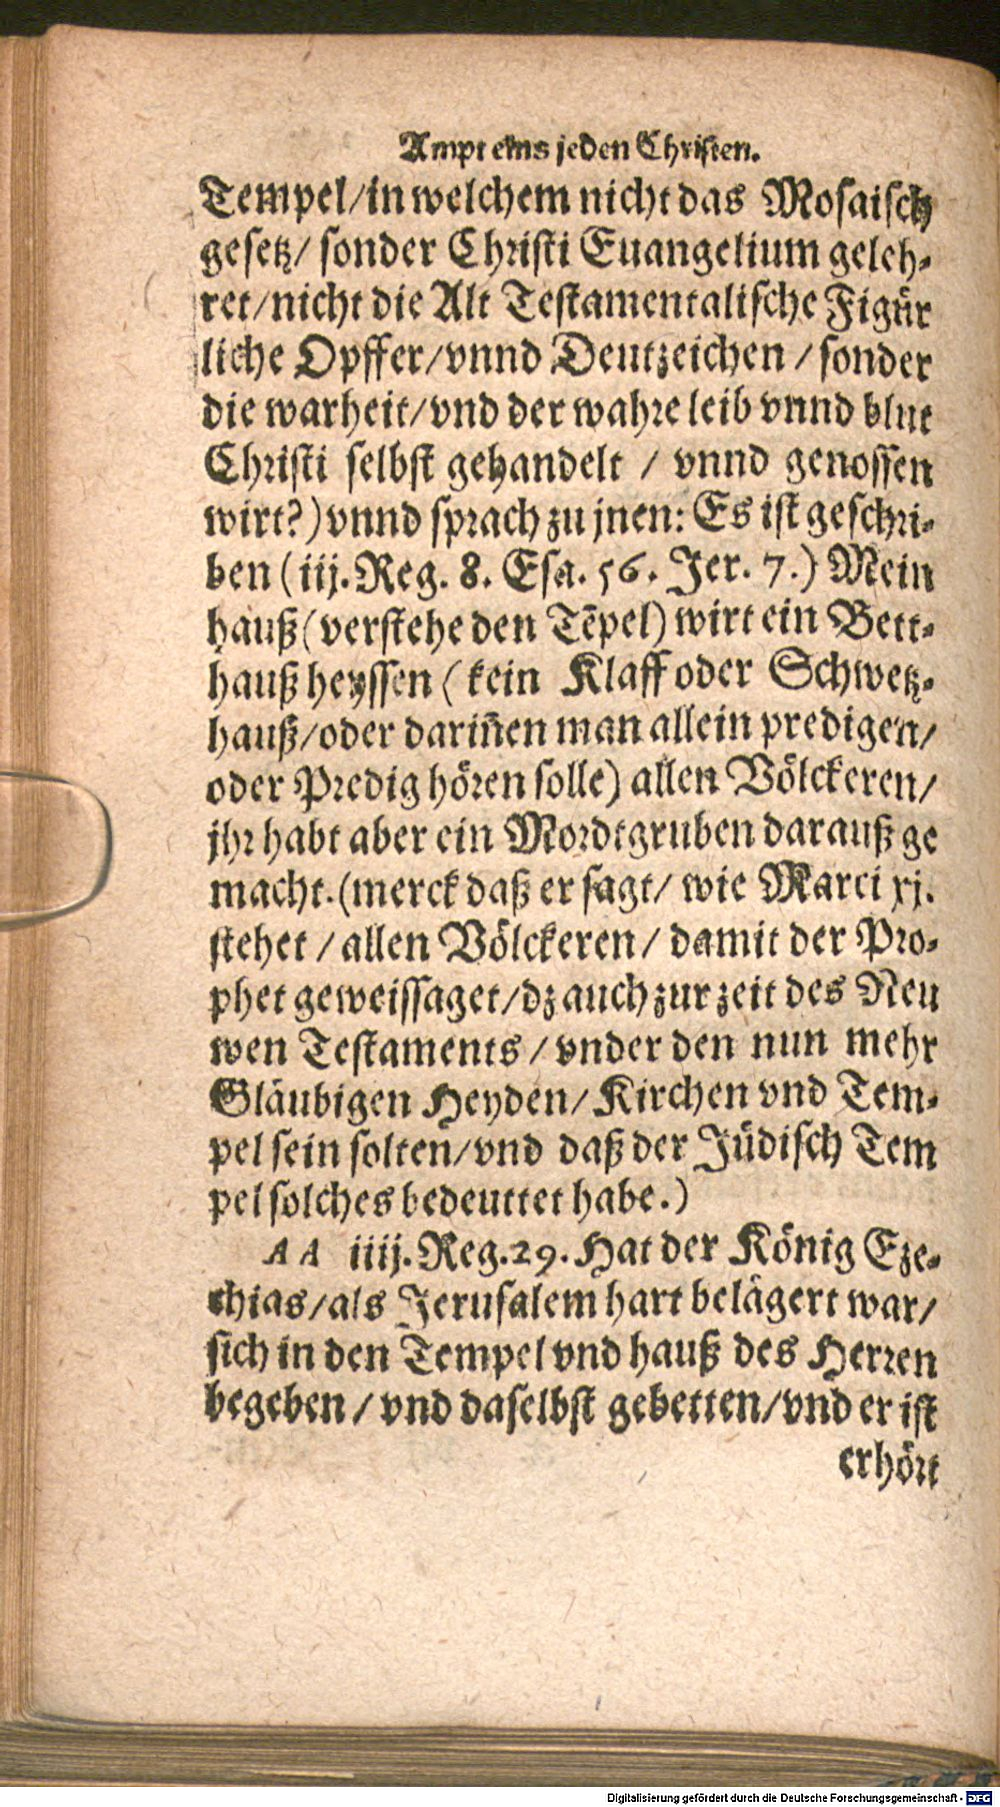 Ampt eins jeden Christen.
Tempel/in welchem nicht das Mosaisch
gesetz/ sonder Christi Euangelium geleh-
ret/nicht die Alt Testamentalische Figür
liche Opffer/vnnd Deutzeichen / sonder
die warheit/vnd der wahre leib vnnd blut
Christi selbst gehandelt / vnnd genossen
wirt?) vnnd sprach zu jnen: Es ist geschri-
ben (iij. Reg. 8. Esa. 56. Jer. 7.) Mein
hauß (verstehe den Tẽpel) wirt ein Bett-
hauß heyssen ( kein Klaff oder Schwetz-
hauß/oder dariñen man allein predigen/
oder Predig hören solle) allen Völckeren/
jhr habt aber ein Mordtgruben darauß ge
macht. (merck daß er sagt/ wie Marci xj.
stehet / allen Völckeren / damit der Pro-
phet geweissaget/dz auch zur zeit des Neu
wen Testaments / vnder den nun mehr
Gläubigen Heyden/ Kirchen vnd Tem-
pel sein solten/vnd daß der Jüdisch Tem
pel solches bedeuttet habe.)
A A iiij. Reg. 29. Hat der König Eze-
chias/als Jerusalem hart belägert war/
sich in den Tempel vnd hauß des Herren
begeben / vnd daselbst gebetten/vnd er ist
erhört
Digitalisierung gefördert durch die Deutsche Forschungsgemeinschaft - DFG